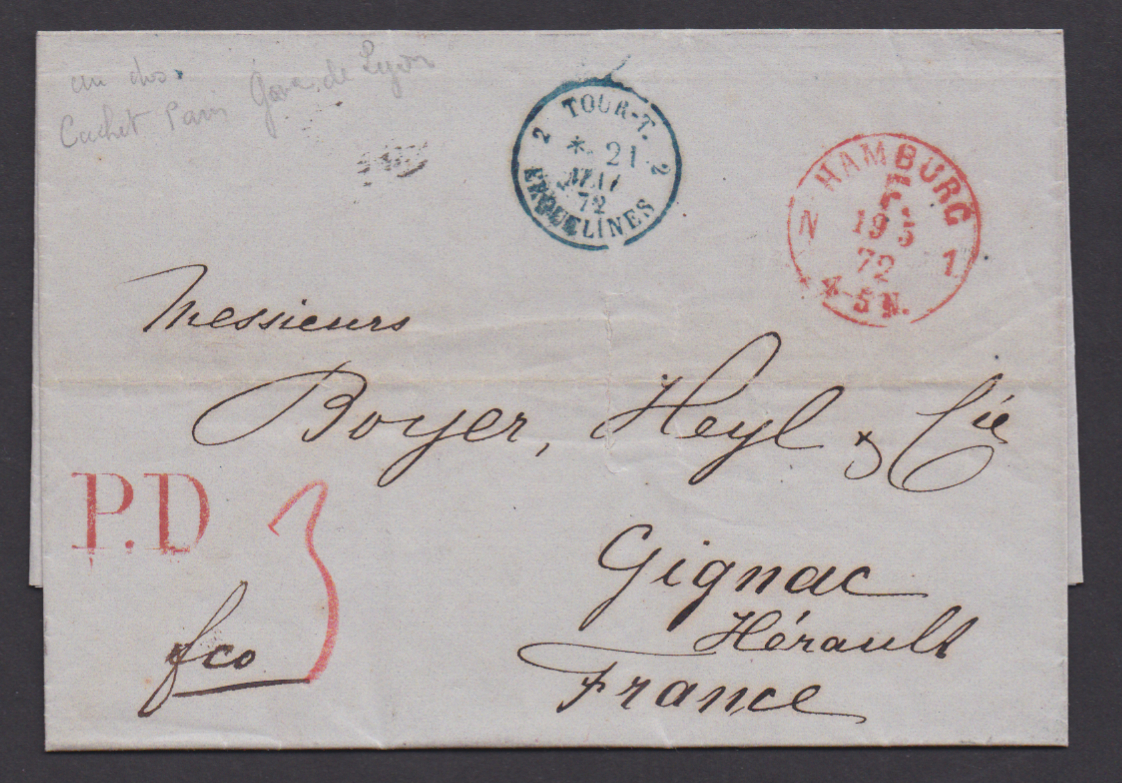 au dos
Cachet Paris Gare de Lyon
2 TOUR-T. 2
* 21
MAI
72
ERQUELINES
HAMBURG
F.
N 19 5 1
72
*-5 N.
Messieurs
Boyer, Heyl & Cie
P.D
3
Gignac
Hérault
fco
France